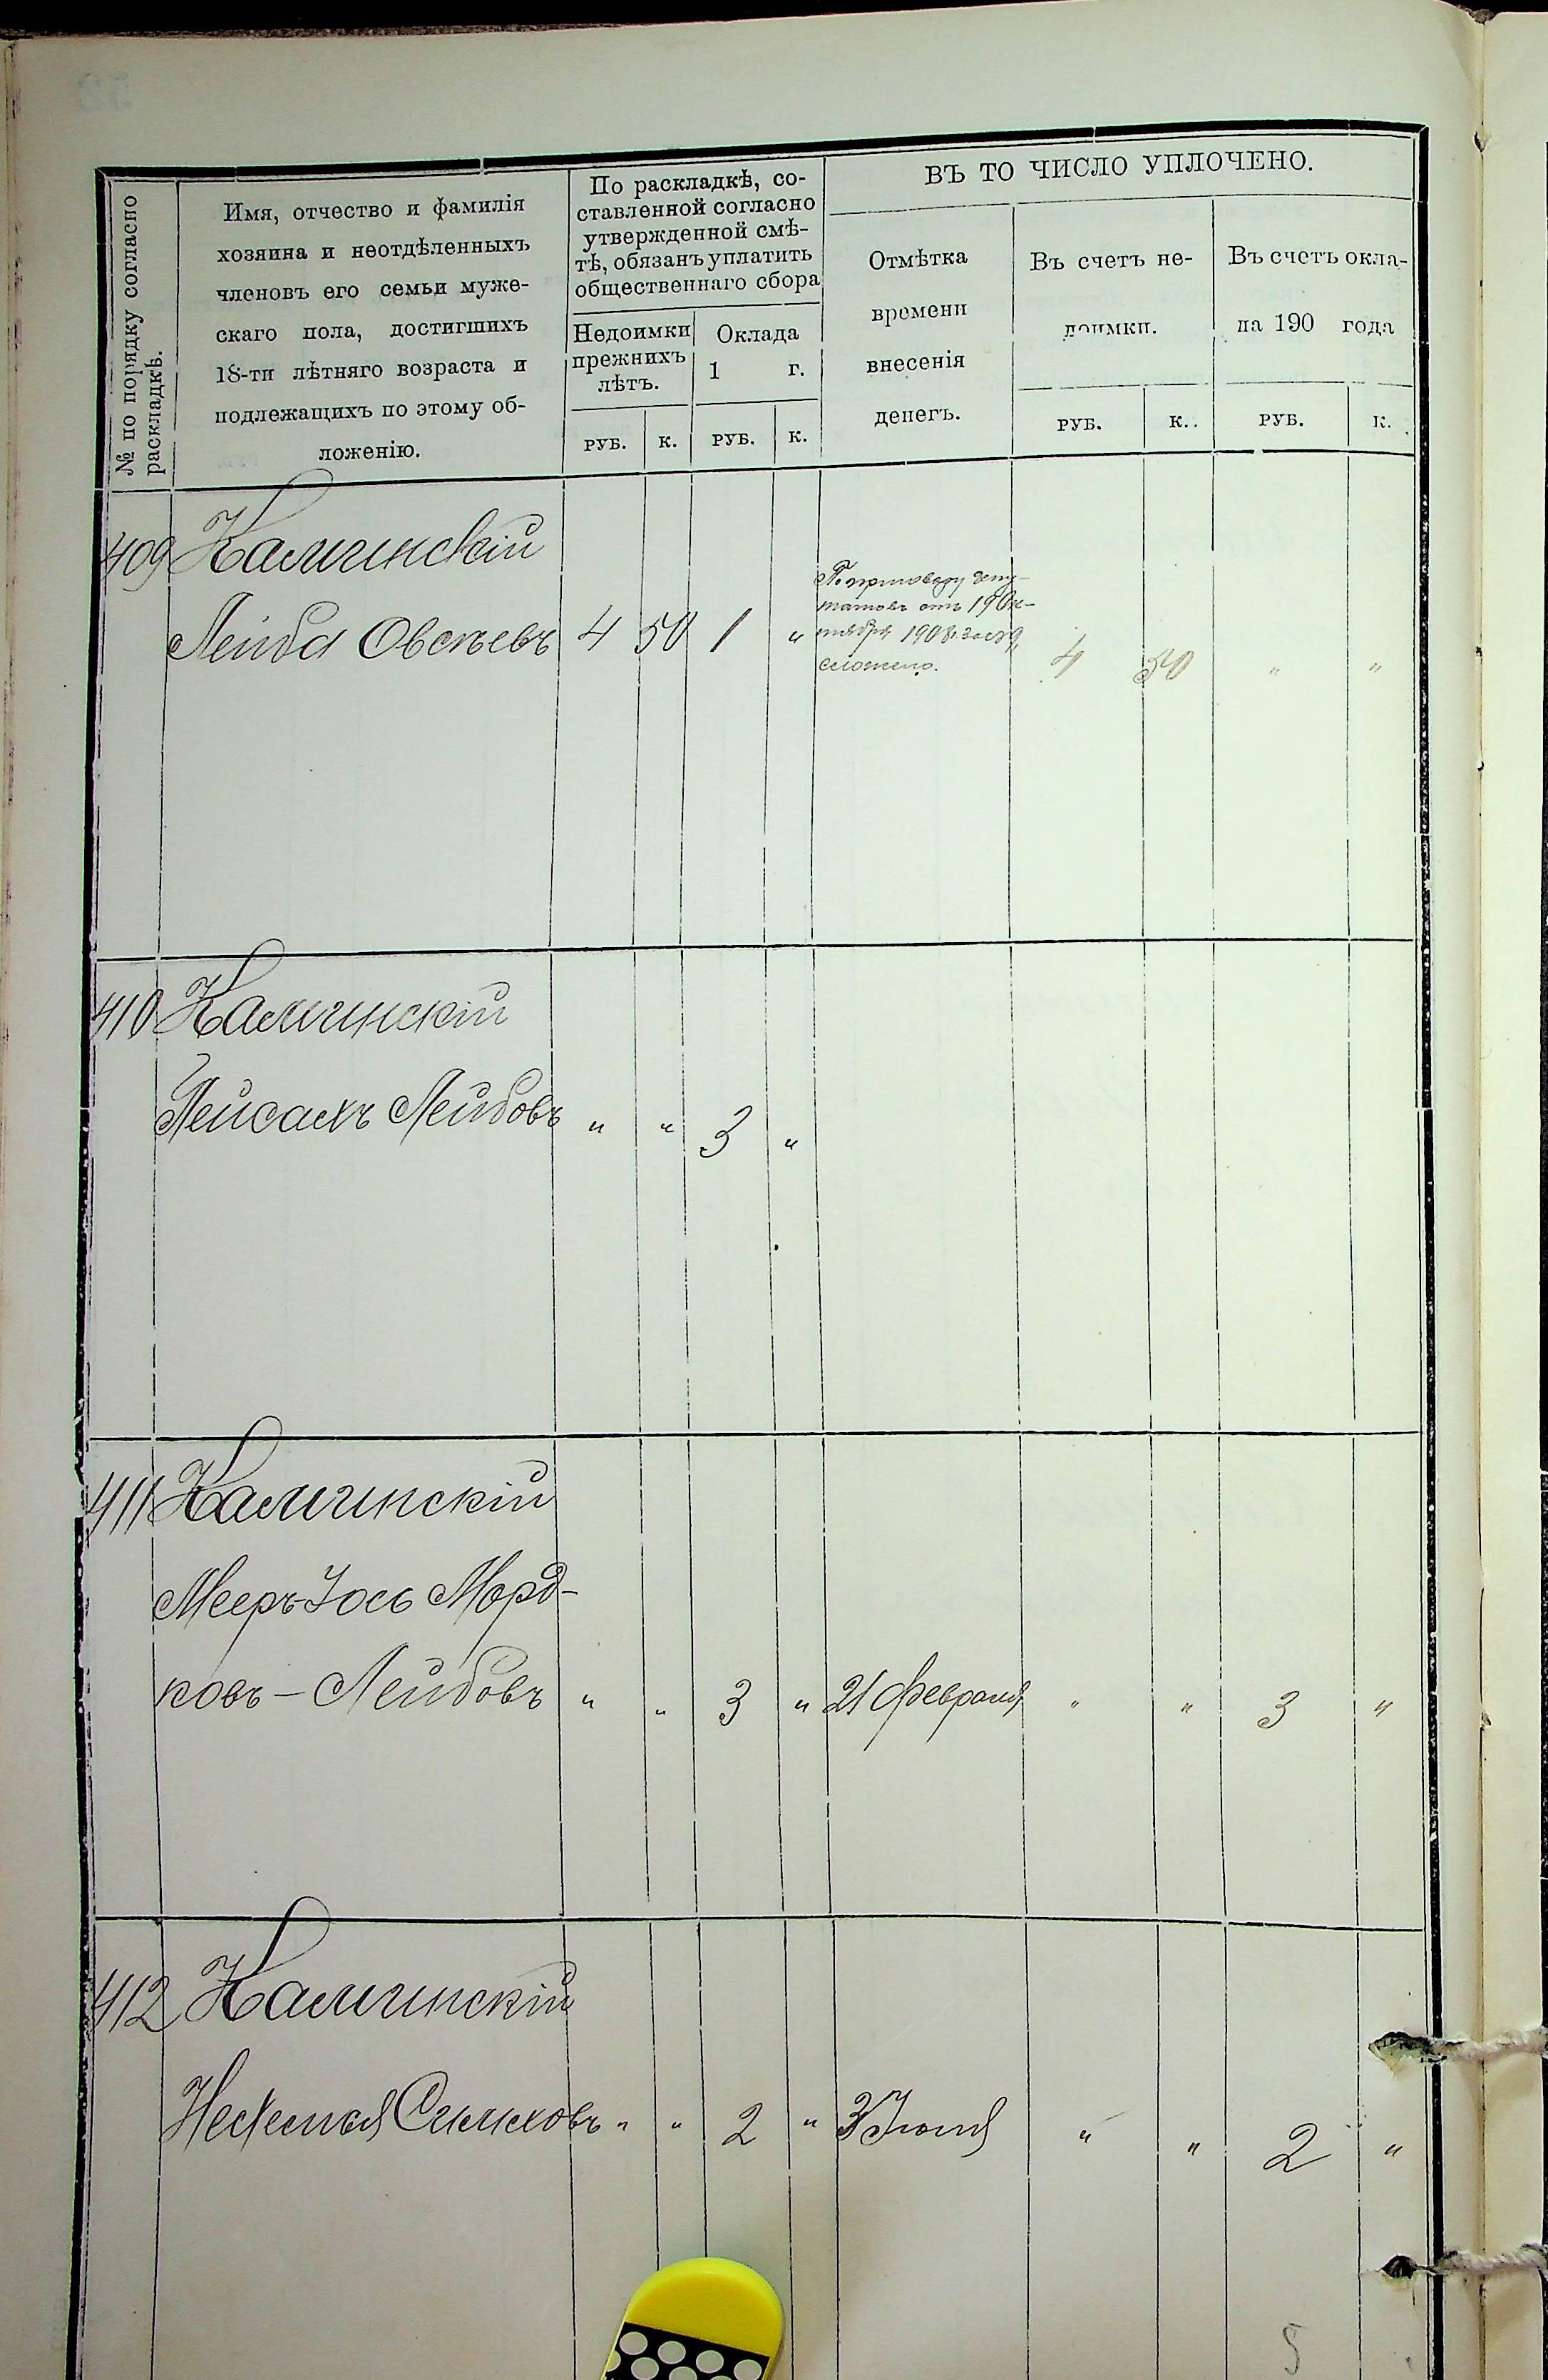 ВЪ ТО ЧИСЛО УПЛОЧЕНО.
№ по порядку согласно
раскладкѣ.
Имя, отчество и фамилія
хозяина и неотдѣленныхъ
членовъ его семьи муже-
скаго пола, достигшихъ
18-ти лѣтняго возраста и
подлежащихъ по этому об-
ложенію.
По раскладкѣ, со-
ставленной согласно
утвержденной смѣ-
тѣ, обязанъ уплатить
общественнаго сбора
Недоимки
прежнихъ
лѣтъ.
Оклада
1 г.
РУБ. К. РУБ. К.
Отмѣтка
времени
внесенія
денегъ.
Въ счетъ не-
доимки.
РУБ. К.
Въ счетъ окла-
на 190 года
РУБ. К.
409 Калминскій
Лейба Овсѣевъ 4 50 1 "
По приговору депу-
татовъ отъ 19 Ок-
тября 1908
сложено.
4 50 " "
410 Калминскій
Пейсахъ Лейбовъ " " 3 "
411 Калминскій
Мееръ-Іось Морд-
ковъ-Лейбовъ " " 3 " 21 Февраля " " 3 "
412 Калминскій
Нехемья " " 2 " 3 Іюля " " 2 "
5